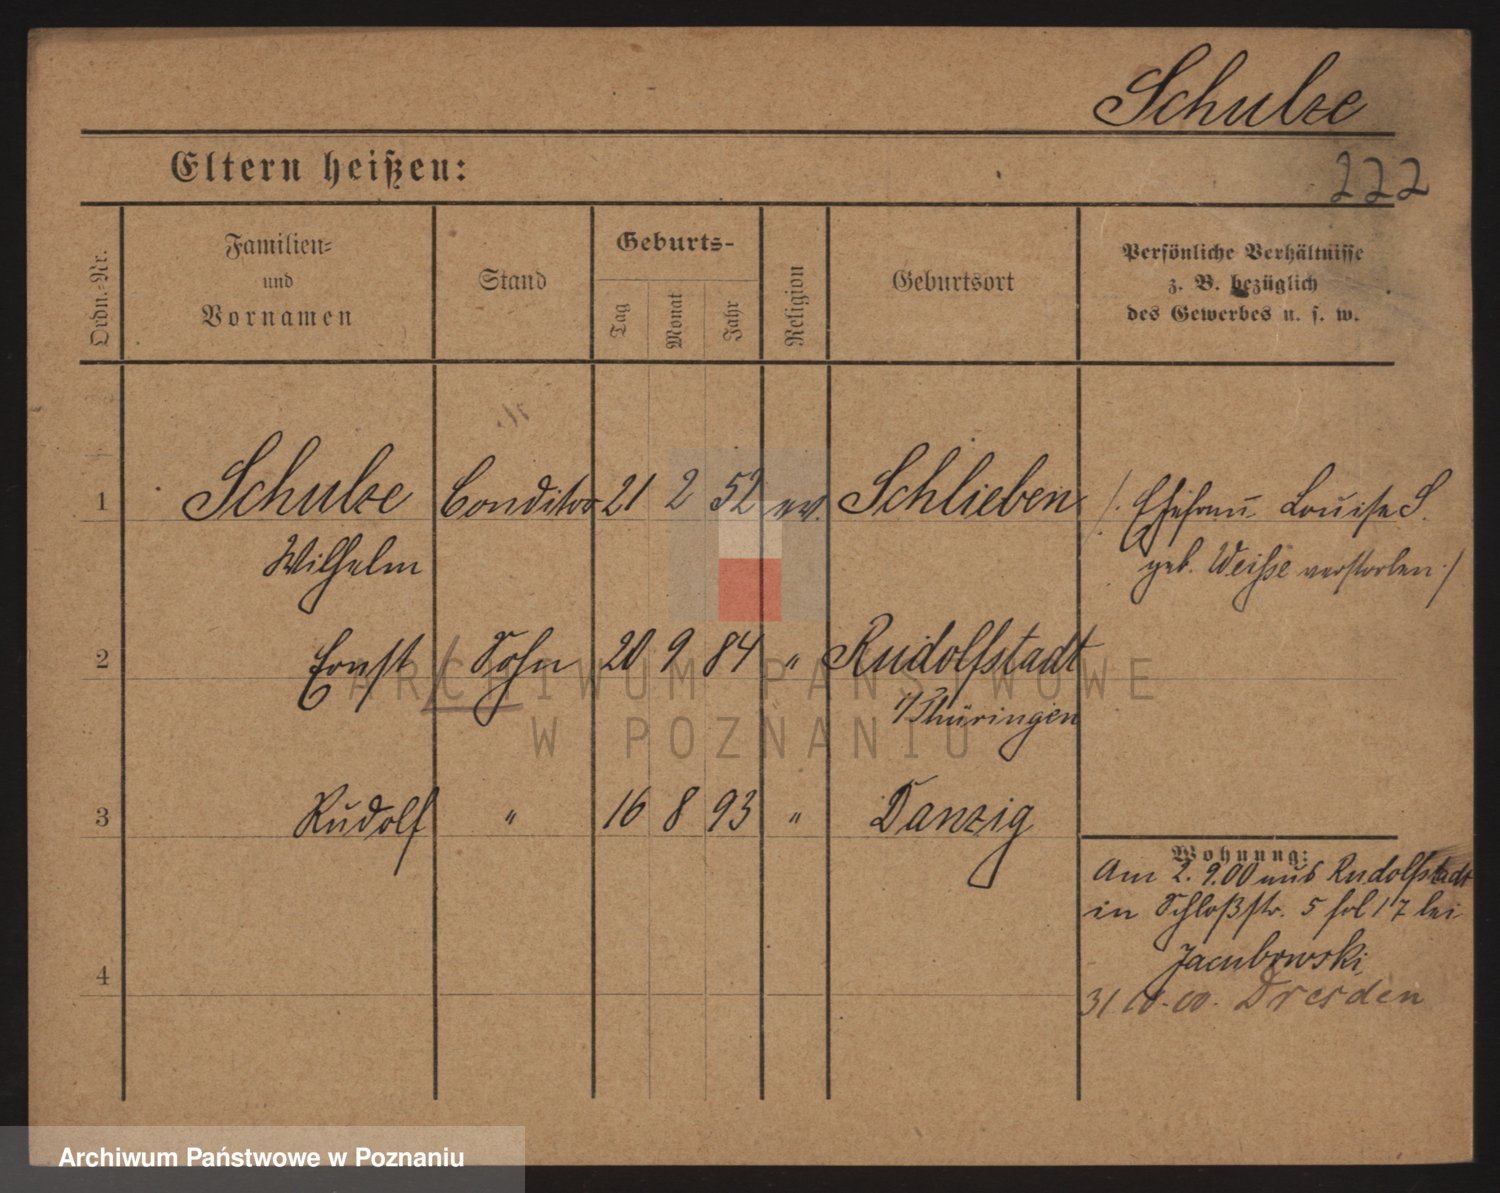 Schulze
Eltern heißen:
222
Ordn.-Nr.
Familien-
und
Vornamen
Stand
Geburts-
Tag
Monat
Jahr
Religion
Geburtsort
Persönliche Verhältnisse
z. B. bezüglich
des Gewerbes u. s. w.
1 Schulze Conditor 21 2 52 ev. Schlieben /. Ehefrau Louise S.
Wilhelm geb. Weiße verstorben ./
2 Ernst Sohn 20 9 84 " Rudolfstadt
i/Thüringen
3 Rudolf " 16 8 93 " Danzig
Wohnung:
Am 2. 9.00 aus Rudolfstadt
in Schloßstr. 5 fol 17 bei
Jacubowski
4
31 10.00. Dresden
ARCHIWUM PAŃSTWOWE
W POZNANIU
Archiwum Państwowe w Poznaniu